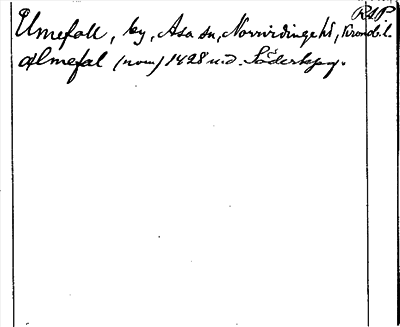 RAP.
Elmefall, by, Asa sn, Norrvidinge hd, Kronob. l.
Ælmefal (nom) 1428 u.d. Söderköping.